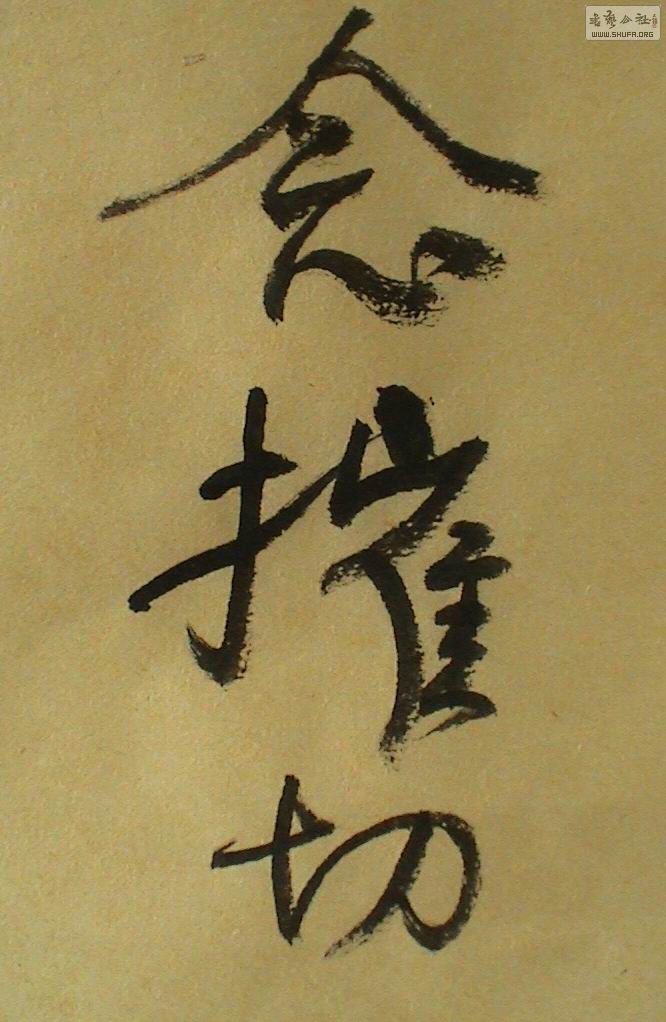 念摧切
书艺公社
WWW.SHUFA.ORG